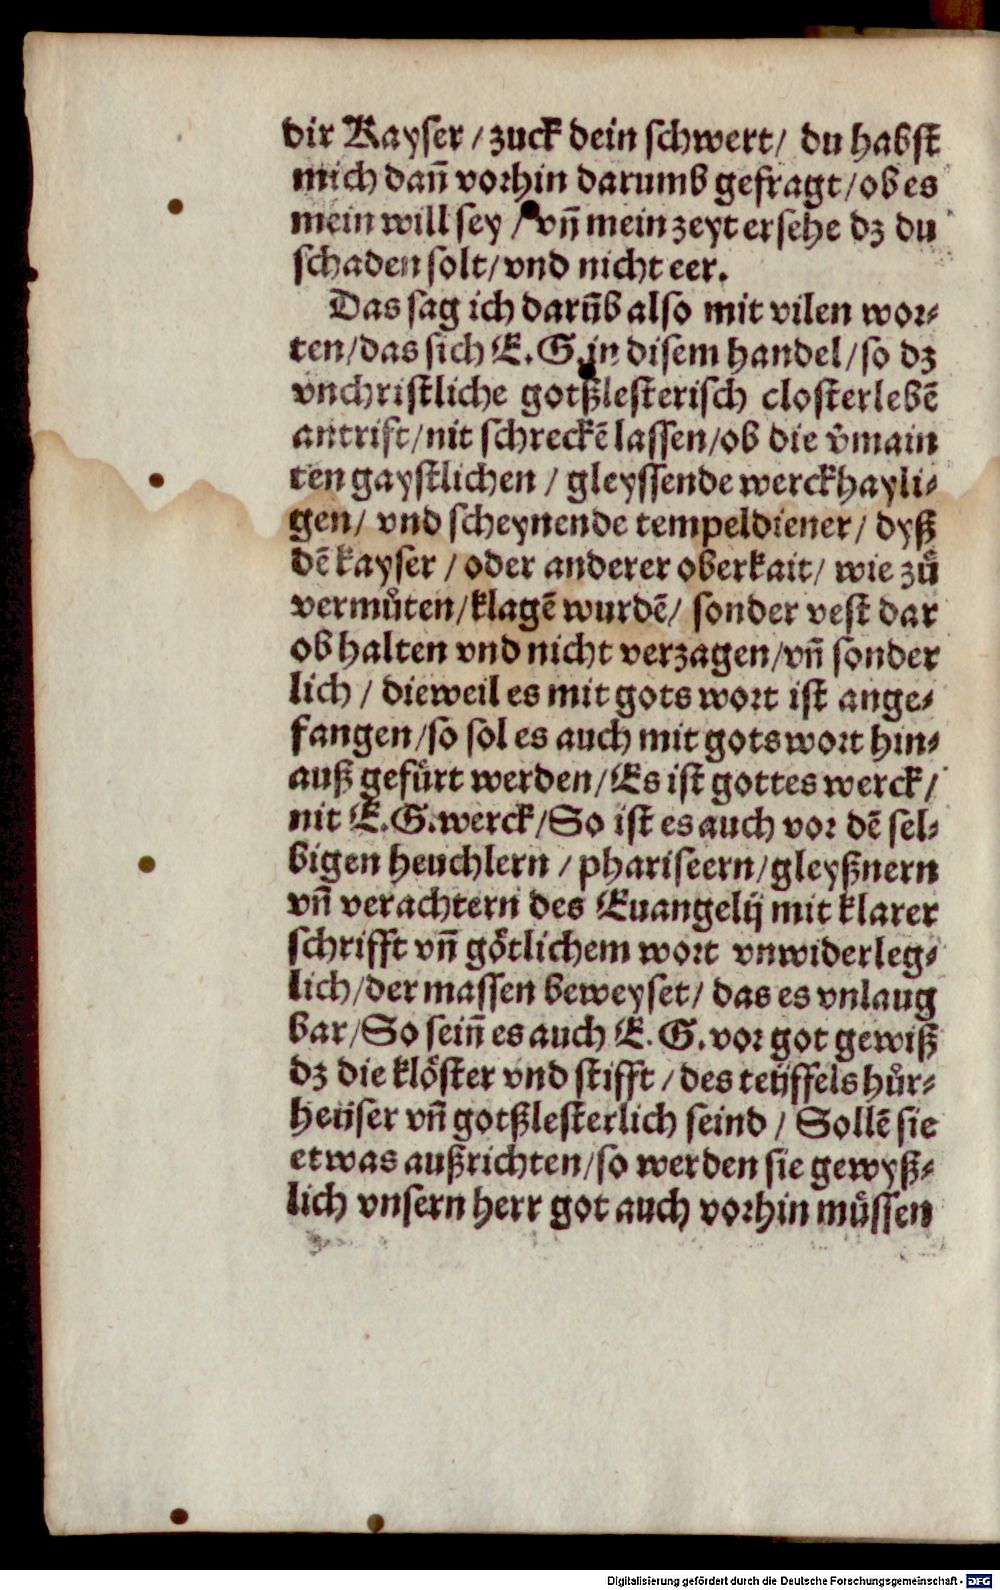 dir Kayser / zuck dein schwert / du habst
mich dañ vorhin darumb gefragt / ob es
mein will sey / vñ mein zeyt ersehe dz du
schaden solt / vnd nicht eer.
Das sag ich darũb also mit vilen wor⸗
ten / das sich E. G. in disem handel / so dz
vnchristliche gotßlesterisch closterlebẽ
antrift / nit schreckẽ lassen / ob die v̂main
ten gaystlichen / gleyssende werckhayli⸗
gen / vnd scheynende tempeldiener / dyß
dẽ kayser / oder anderer oberkait / wie zů
vermůten / klagẽ wurdẽ / sonder vest dar
ob halten vnd nicht verzagen / vñ sonder
lich / dieweil es mit gots wort ist ange⸗
fangen / so sol es auch mit gots wort hin⸗
auß gefürt werden / Es ist gottes werck /
nit E. G. werck / So ist es auch vor dẽ sel⸗
bigen heuchlern / phariseern / gleyßnern
vñ verachtern des Euangelij mit klarer
schrifft vñ götlichem wort vnwiderleg⸗
lich / der massen beweyset / das es vnlaug
bar / So seiñ es auch E. G. vor got gewiß
dz die klöster vnd stifft / des teüffels hůr⸗
heüser vñ gotßlesterlich seind / Sollẽ sie
etwas außrichten / so werden sie gewyß⸗
lich vnsern herr got auch vorhin müssen
Digitalisierung gefördert durch die Deutsche Forschungsgemeinschaft - DFG